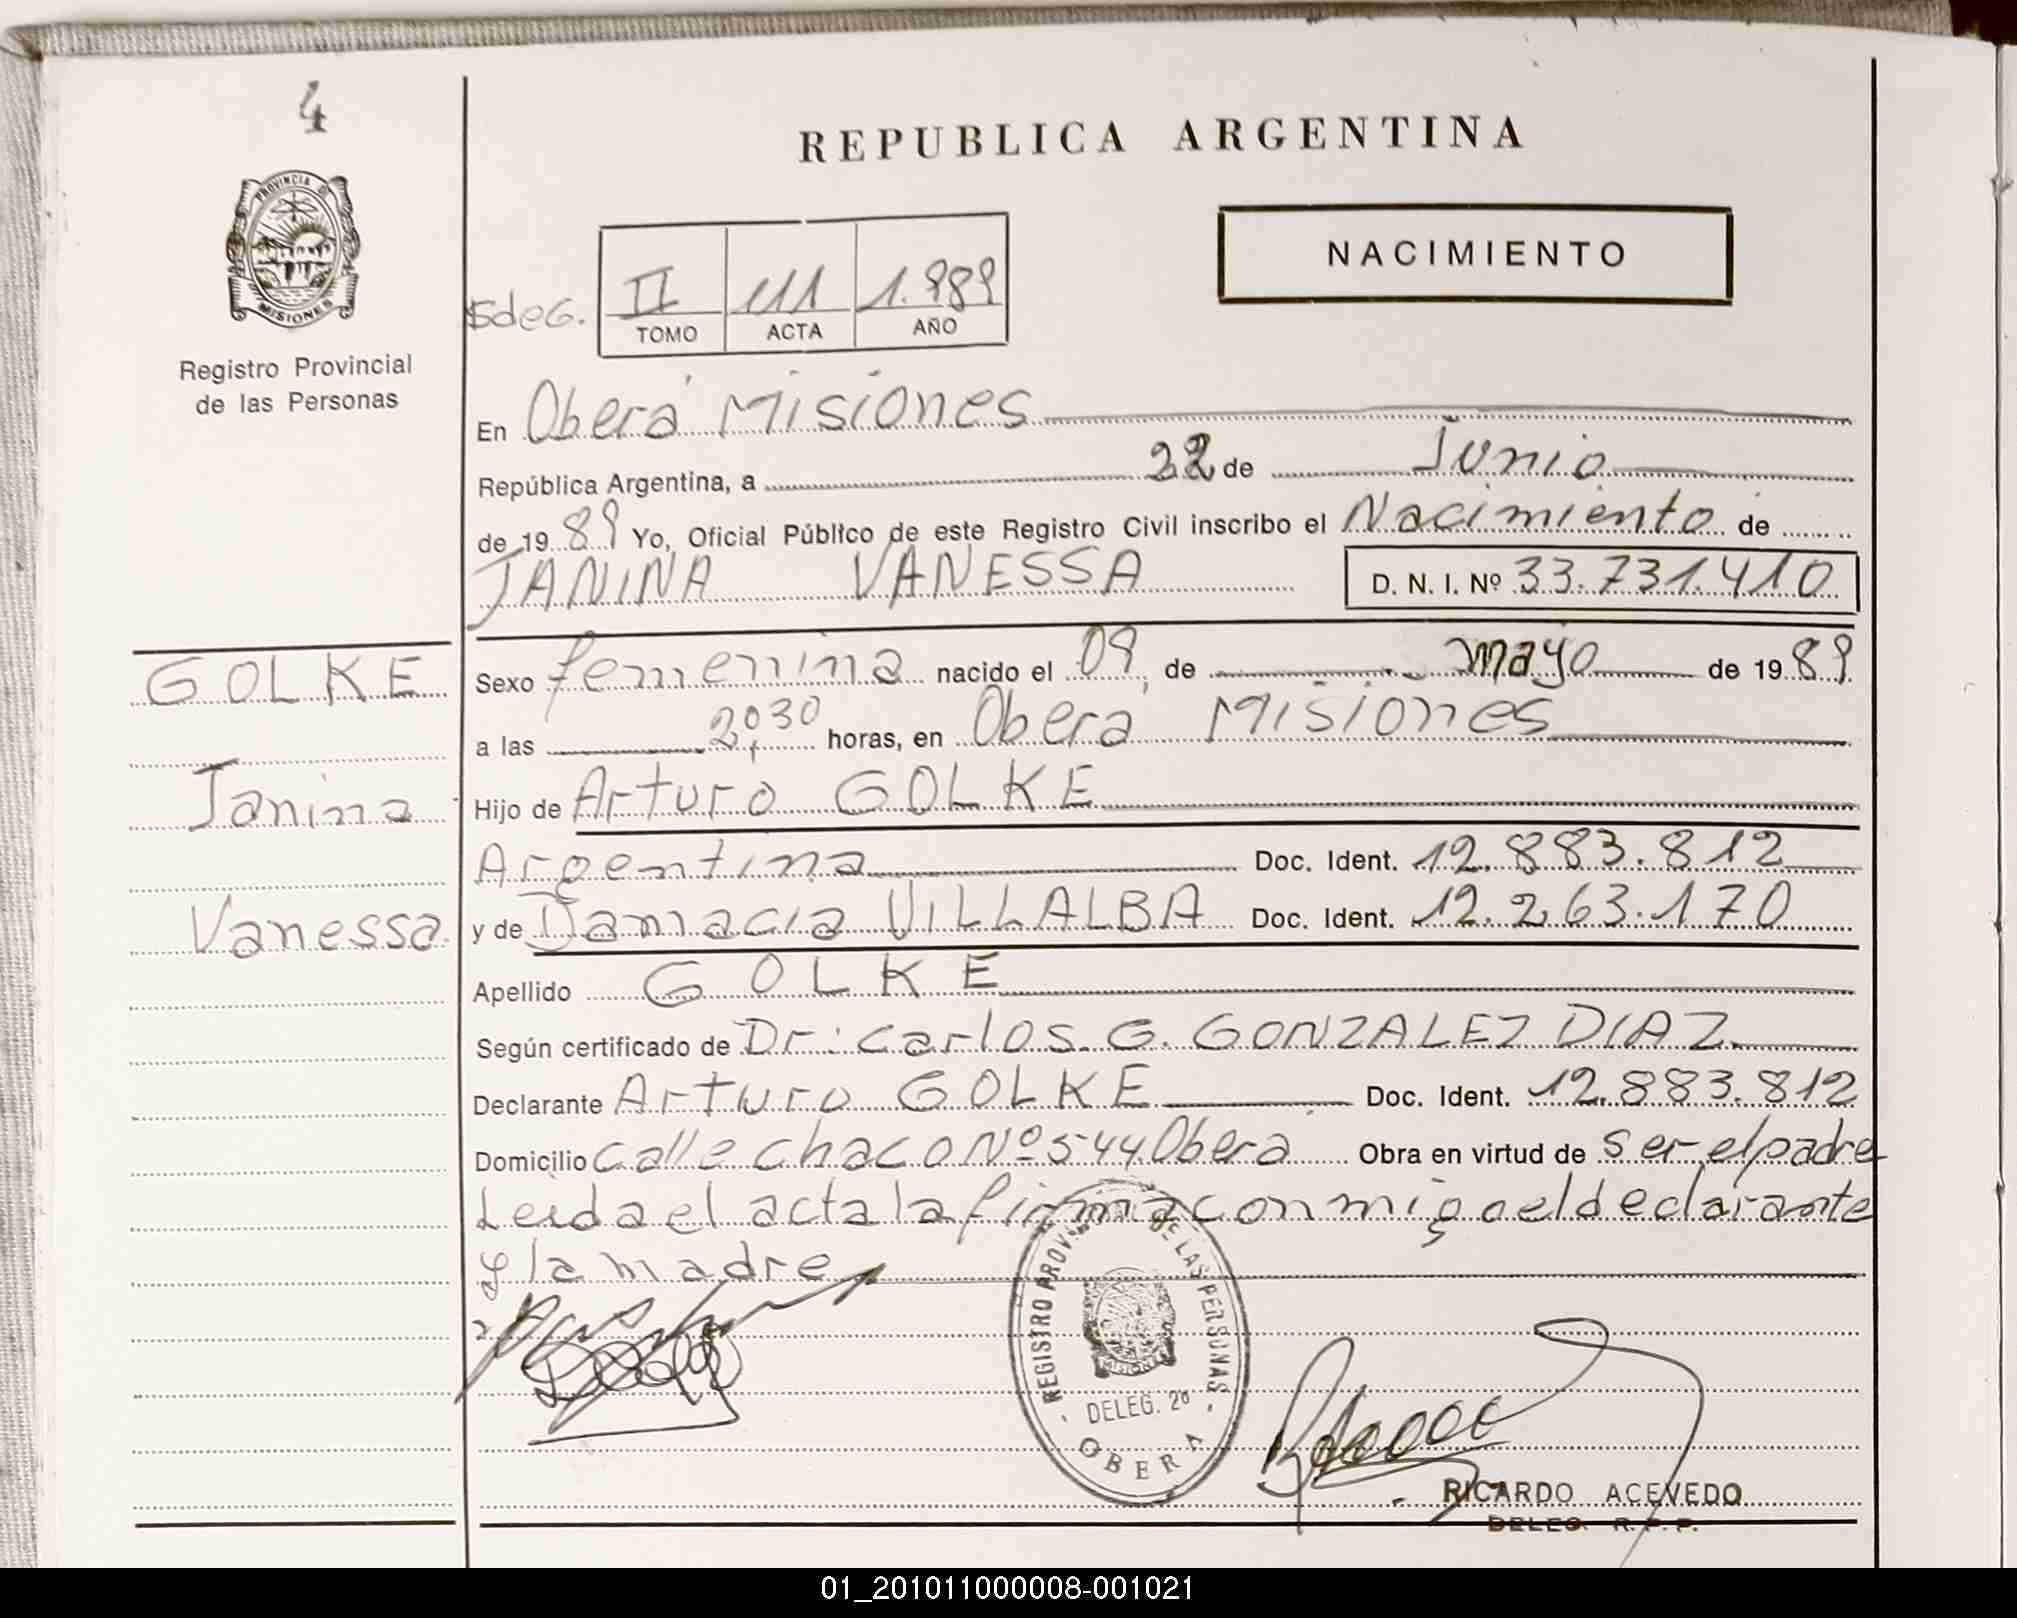 4
REPUBLICA ARGENTINA
PROVINCIA DE
MISIONES
NACIMIENTO
5deG.
II 111 1.989
TOMO ACTA AÑO
Registro Provincial
de las Personas
En Oberá Misiones
República Argentina, a 22 de Junio
de 1989 Yo, Oficial Público de este Registro Civil inscribo el Nacimiento de
JANINA VANESSA D. N. I. Nº 33.731.410
GOLKE
Janina
Vanessa
Sexo femenina nacido el 09, de mayo de 1989
a las 2,30 horas, en Oberá Misiones
Hijo de Arturo GOLKE
Argentina Doc. Ident. 12.883.812
y de Damacia VILLALBA Doc. Ident. 12.263.170
Apellido GOLKE
Según certificado de Dr: Carlos G. GONZALEZ DIAZ
Declarante Arturo GOLKE Doc. Ident. 12.883.812
Domicilio calle chaco Nº 544 Oberá Obra en virtud de ser el padre
Leida el acta la firma conmigo el declarante
y la madre
REGISTRO PROV. DE LAS PERSONAS
MISIONES
DELEG. 2ª
OBERA
RICARDO ACEVEDO
DELEG. R. P. P.
01_201011000008-001021